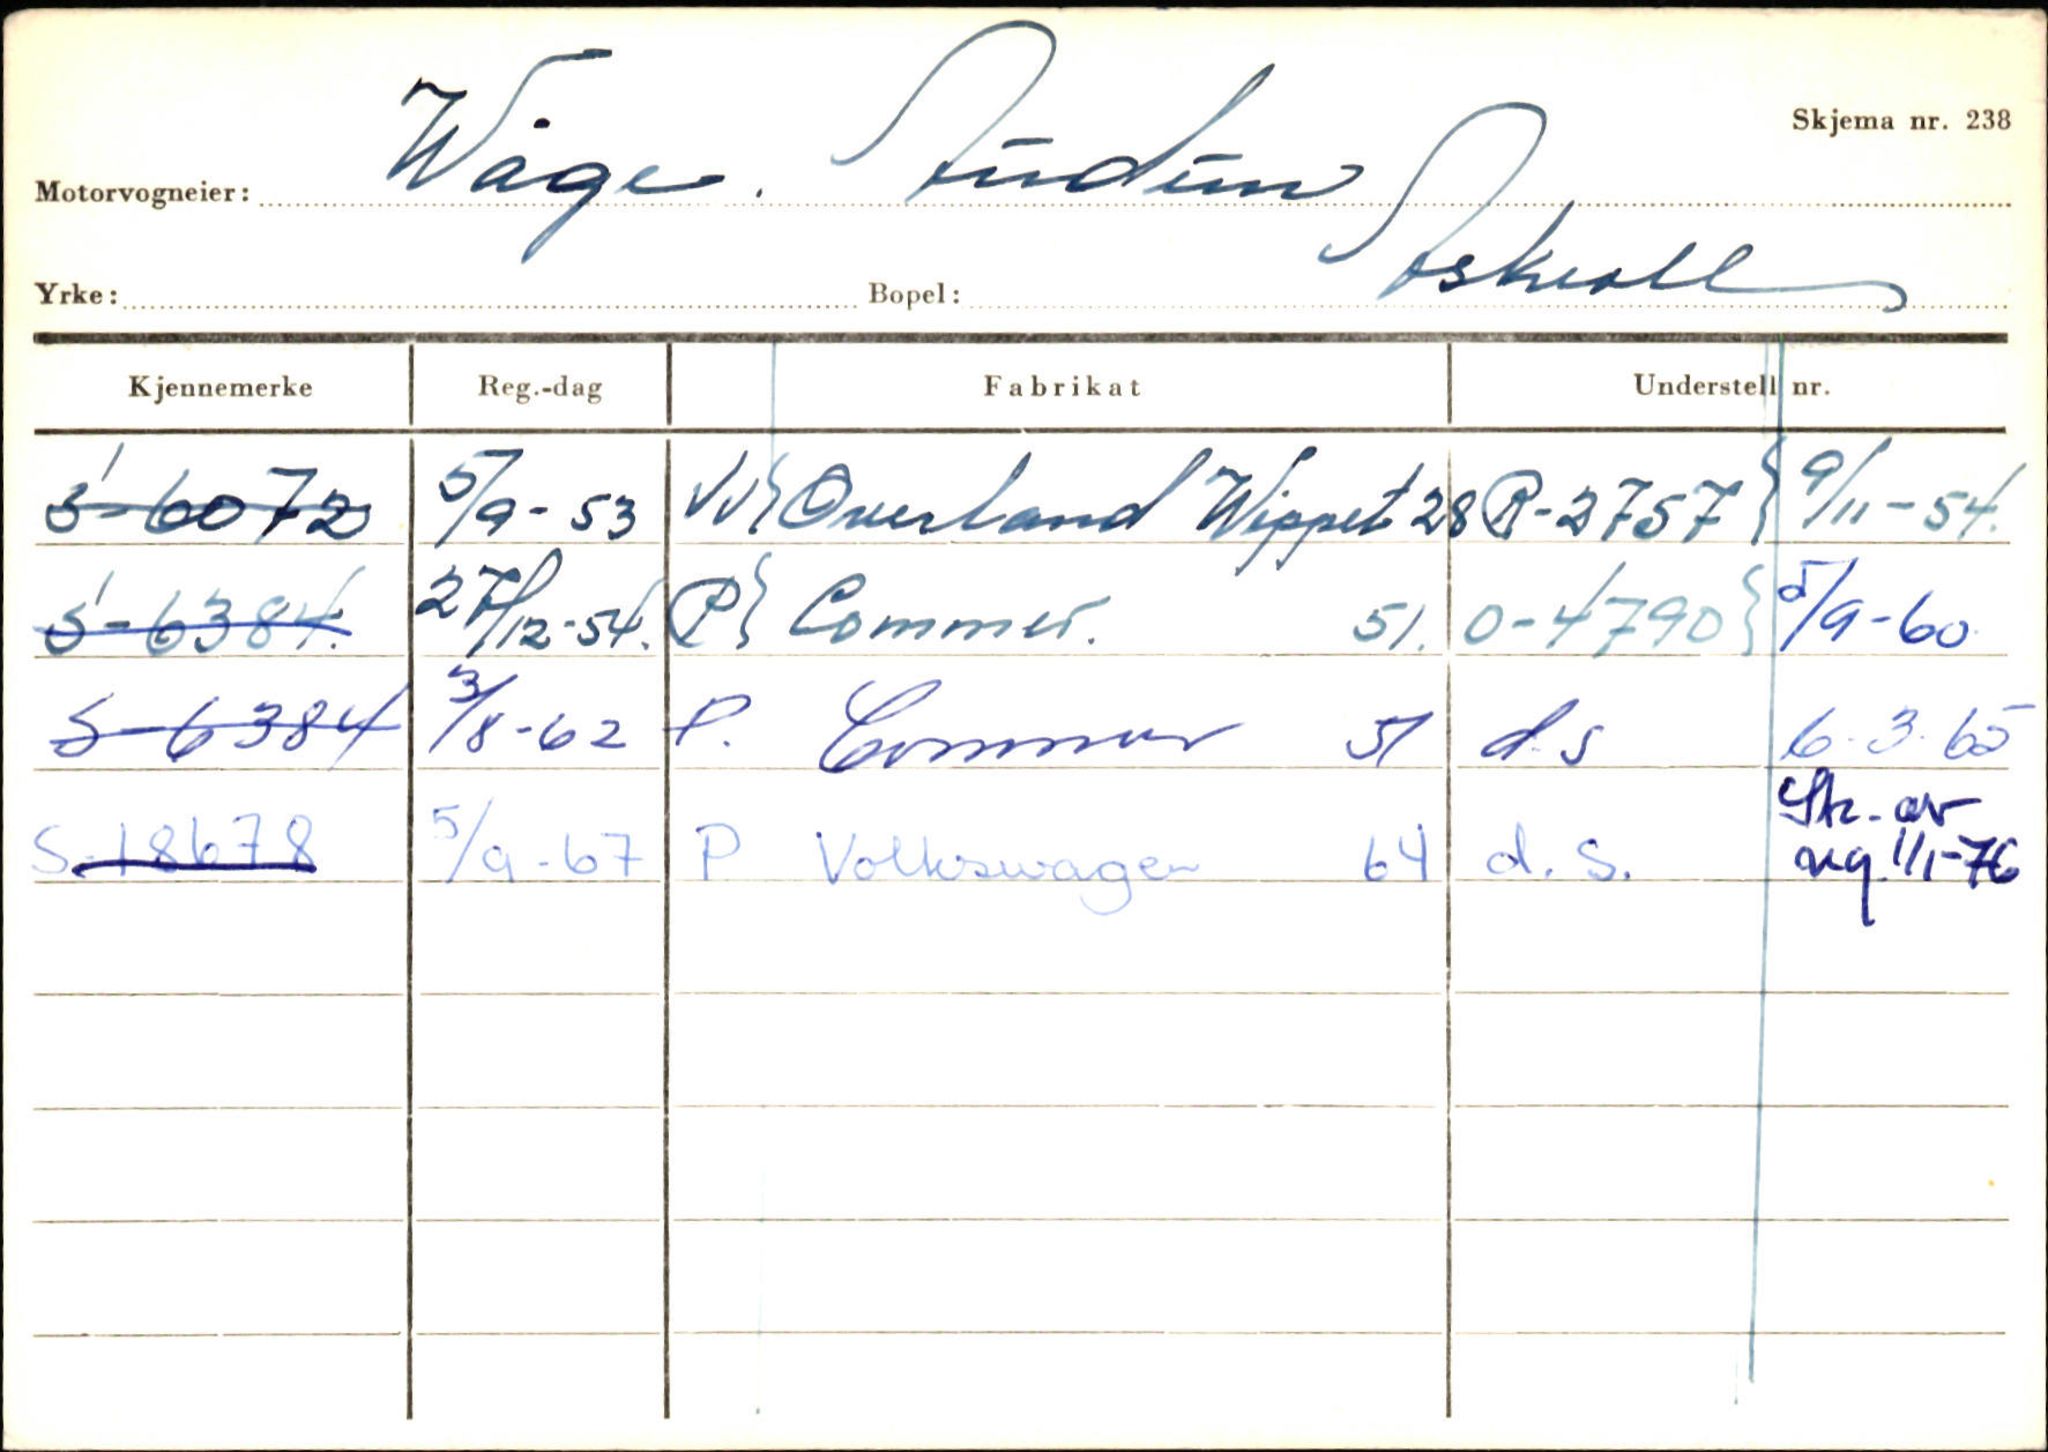 Skjema nr. 238
Motorvogneier: Wåge. Audun
Yrke: Bopel: Askvoll
Kjennemerke Reg.-dag Fabrikat Understell nr.
S-6072 5/9-53 Overland Wippet 28 R-2757 } 9/11-54.
S-6384. 27/12-54. P } Commer. 51. O-4790 } 5/9-60
S-6384 3/8-62 P. Commer 51 d.s 6.3.65
S-18678 5/9-67 P Volkswagen 64 d.s. av
1/1-76